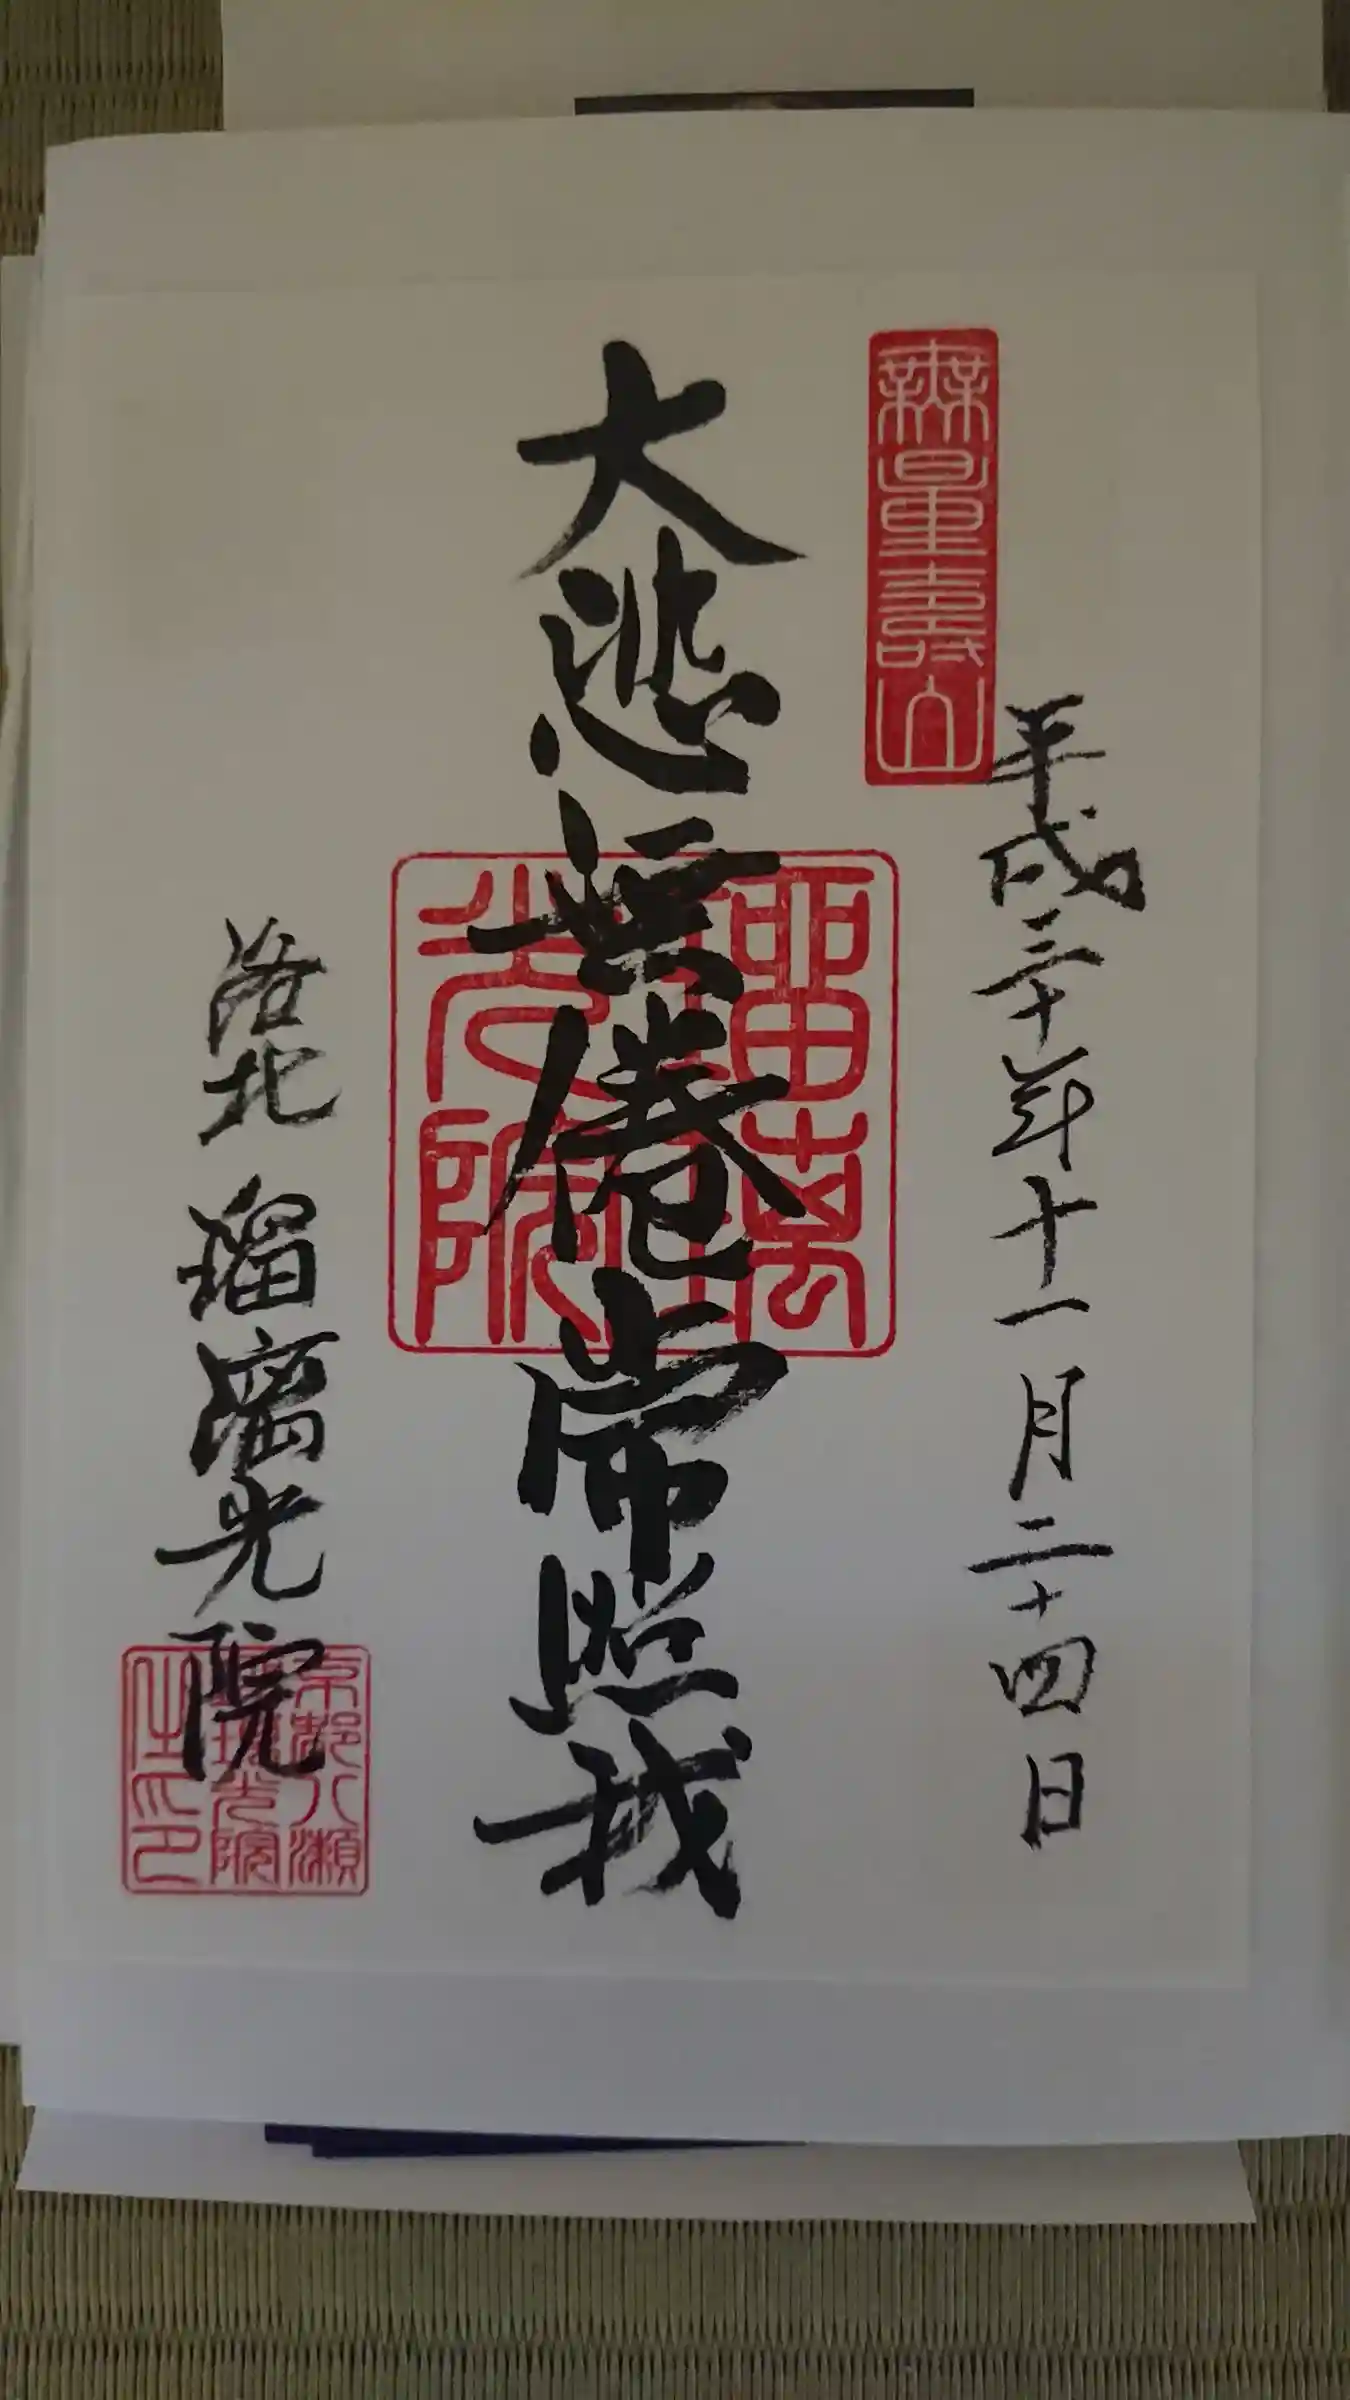 無量壽山
平成三十年十一月二十四日
大悲無倦常照我
瑠璃光院
洛北 瑠璃光院
京都八瀬
瑠璃光院
之印